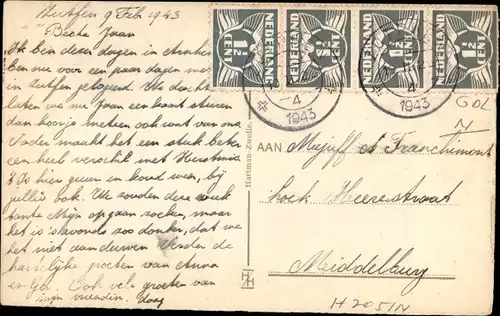 Zutfen 9 Feb 1943
Beste Jaan
Ik ben deze dagen in Arnhem
ben nu voor een paar dagen met
in Zutfen gelogeerd. We dachten
laten we Jaan een kaart sturen
dan hoor je meteen ook iont van ma.
Vader maakt het een stuk beter
een heel verschil met Kerstmis
Is hier guur en koud weer, bij
jullie ook. We zouden deze week
tante Mijn op gaan zoeken, maar
het is 's avonds zoo donker, dat we
het niet aan durven. Verder de
hartelijke groeten van Anna
en Ger. Ook vele groeten van
mijn vrienden. Daag
1½ CENT NEDERLAND
NEDERLAND 1½ CENT
1½ CENT NEDERLAND
NEDERLAND 1½ CENT
4
1943
4
1943
GOL
N
Hartman-Zwolle
AAN
Mejuff et Franchimont
hoek Heerestraat
Middelburg
H 2051N